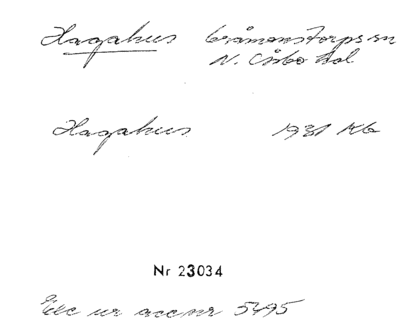 Hagahus Gråmanstorps sn
N. Åsbo hd
Hagahus 1931 Kb
Nr 23034
Exc ur acc nr 5495